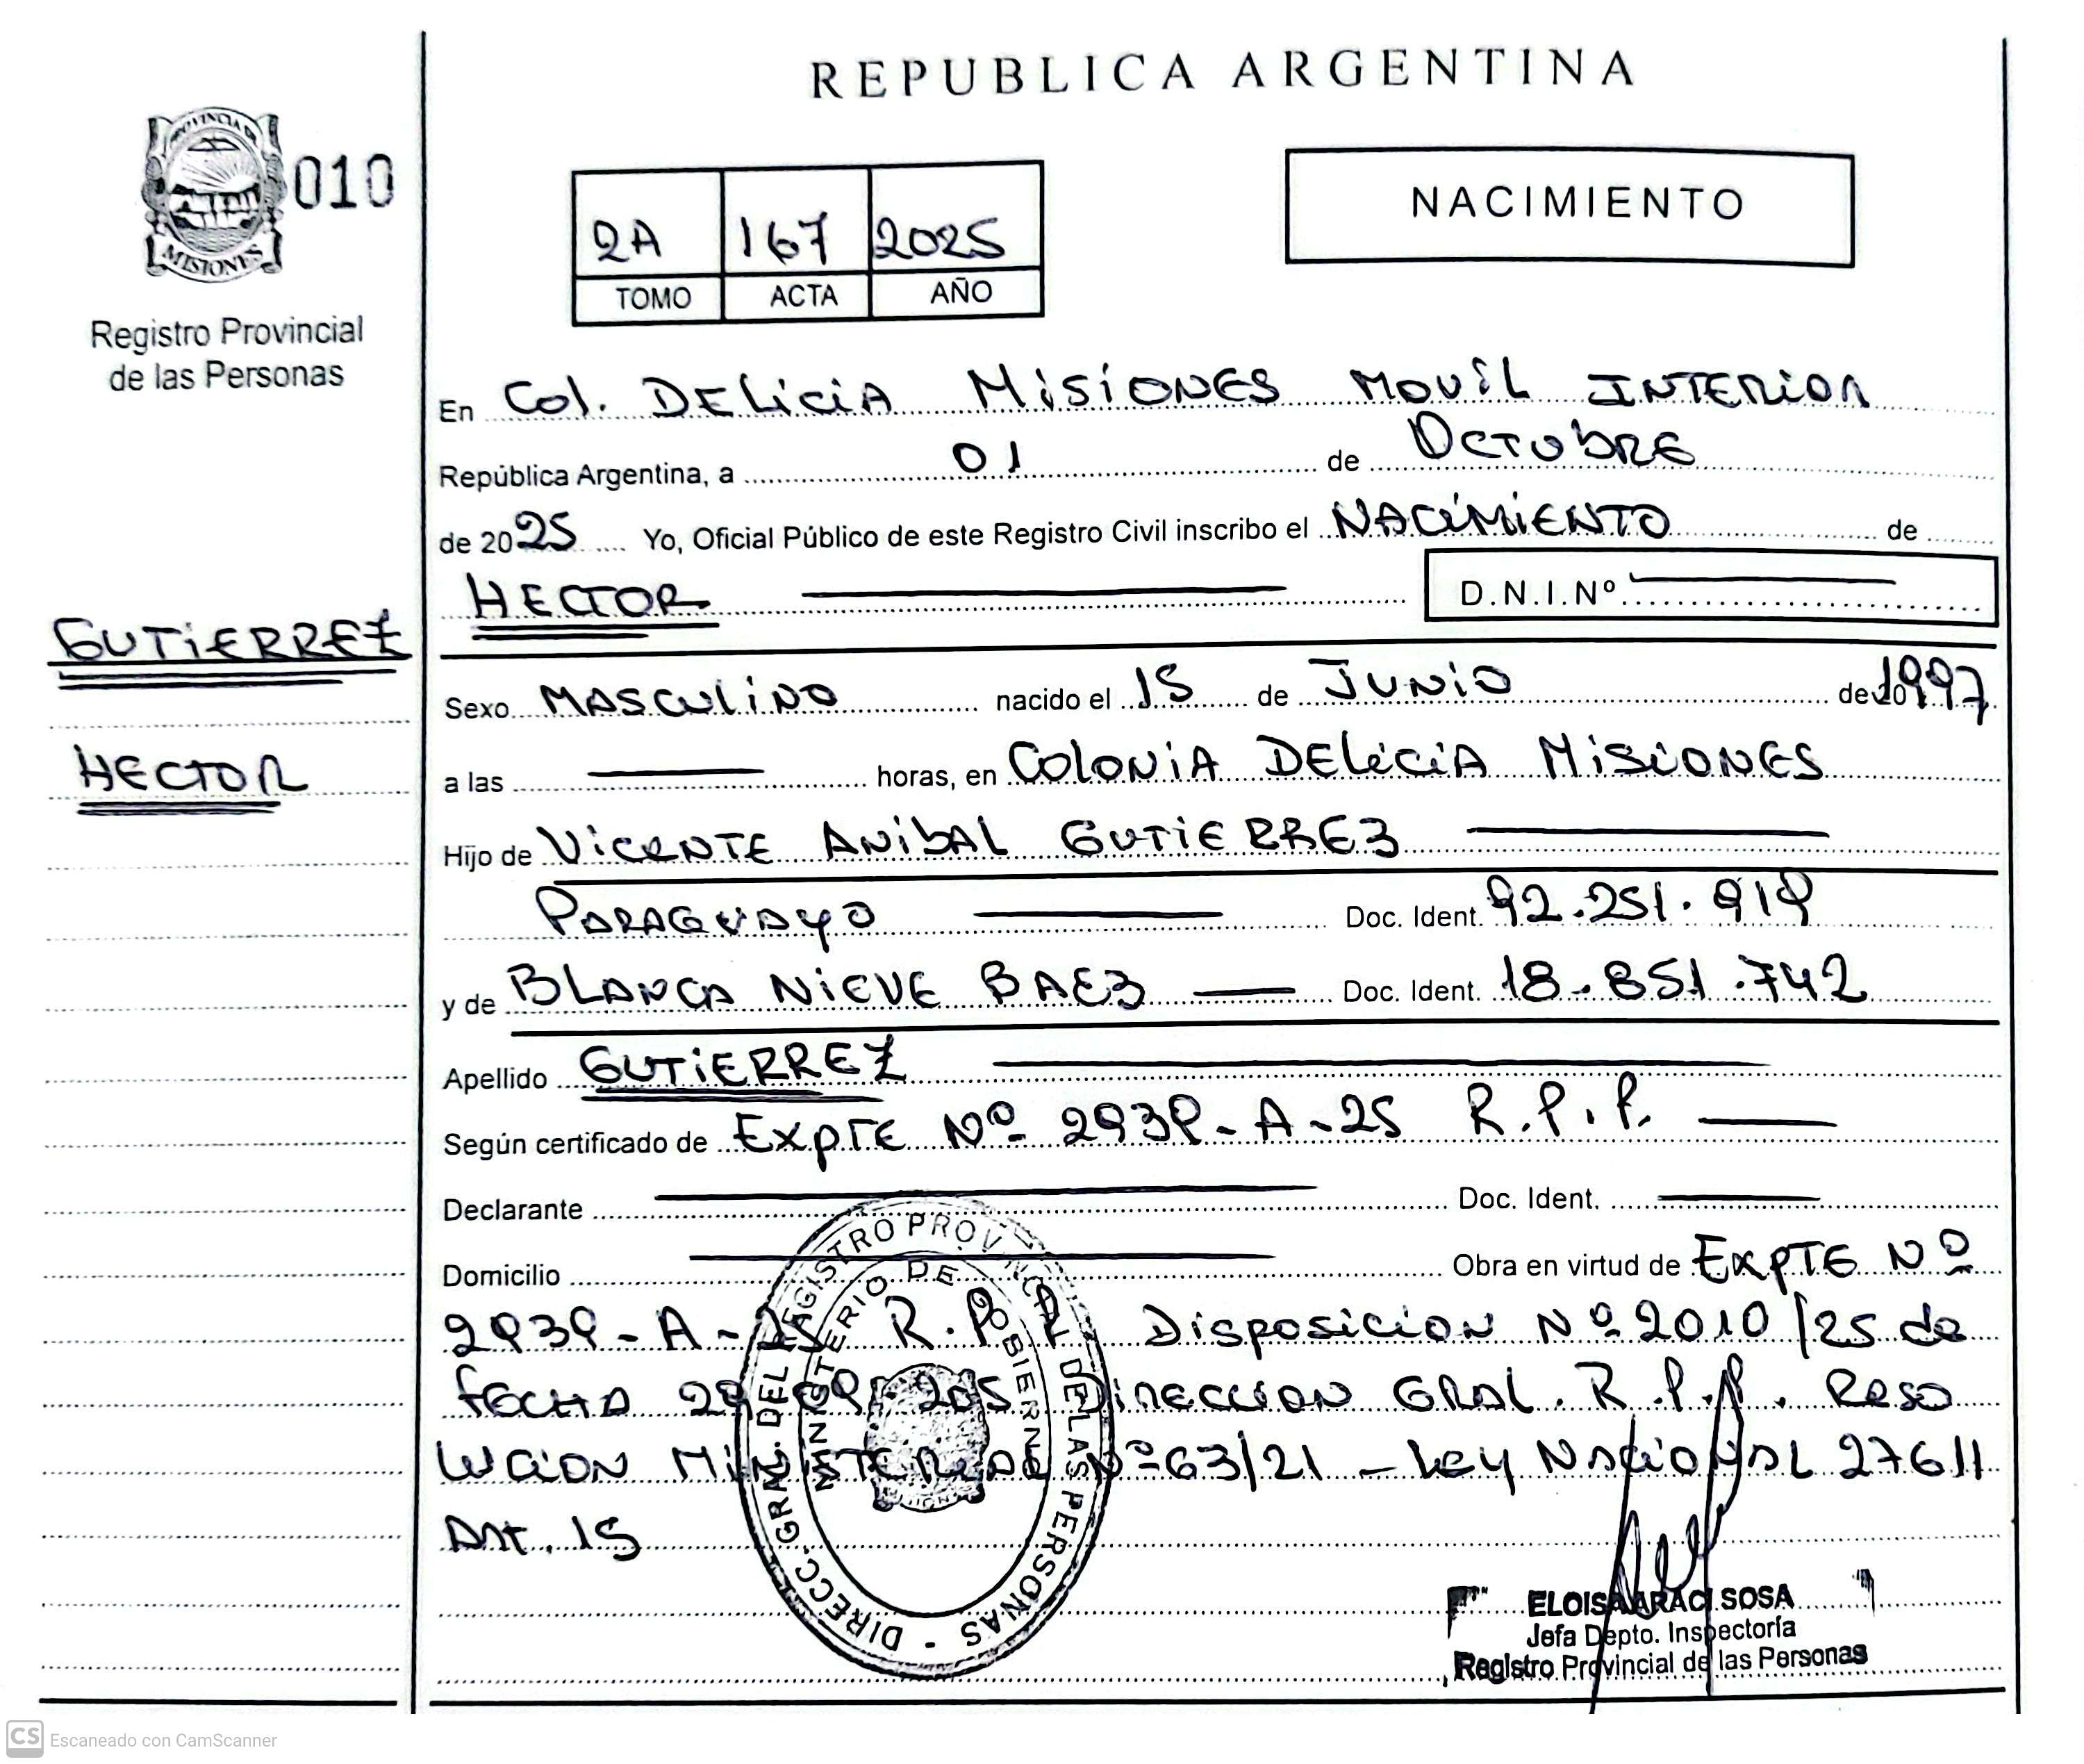 REPUBLICA ARGENTINA
010
NACIMIENTO
2A 167 2025
TOMO ACTA AÑO
PROVINCIA DE
MISIONES
Registro Provincial
de las Personas
En Col. DELiCiA MiSiONES MOViL INTERIOR
República Argentina, a 01 de OCTUBRE
de 2025 Yo, Oficial Público de este Registro Civil inscribo el NACiMiENTO de
HECTOR D.N.I.Nº
GUTiERREZ
HECTOR
Sexo MASCULiNO nacido el 15 de JUNiO de 1997
a las horas, en COLONiA DELiCiA MiSiONES
Hijo de ViCENTE ANiBAL GUTiERREZ
PARAGUAYO Doc. Ident. 92.251.919
y de BLANCA NiEVE BAEZ Doc. Ident. 18.851.742
Apellido GUTiERREZ
Según certificado de EXPTE Nº 2939-A-25 R.P.P.
Declarante Doc. Ident.
Domicilio Obra en virtud de EXPTE Nº
2939-A-25 R.P.P. Disposicion Nº 2010/25 de
FECHA DiRECCiON GRAL. R.P.P. Reso
LUCiON MiNiSTERiAL Nº 63/21 - Ley NACiONAL 27611
Art. 15
DIRECC. GRAL. DEL REGISTRO PROVINCIAL DE LAS PERSONAS -
MINISTERIO DE GOBIERNO
ELOISA ARACI SOSA
Jefa Depto. Inspectoría
Registro Provincial de las Personas
CS Escaneado con CamScanner